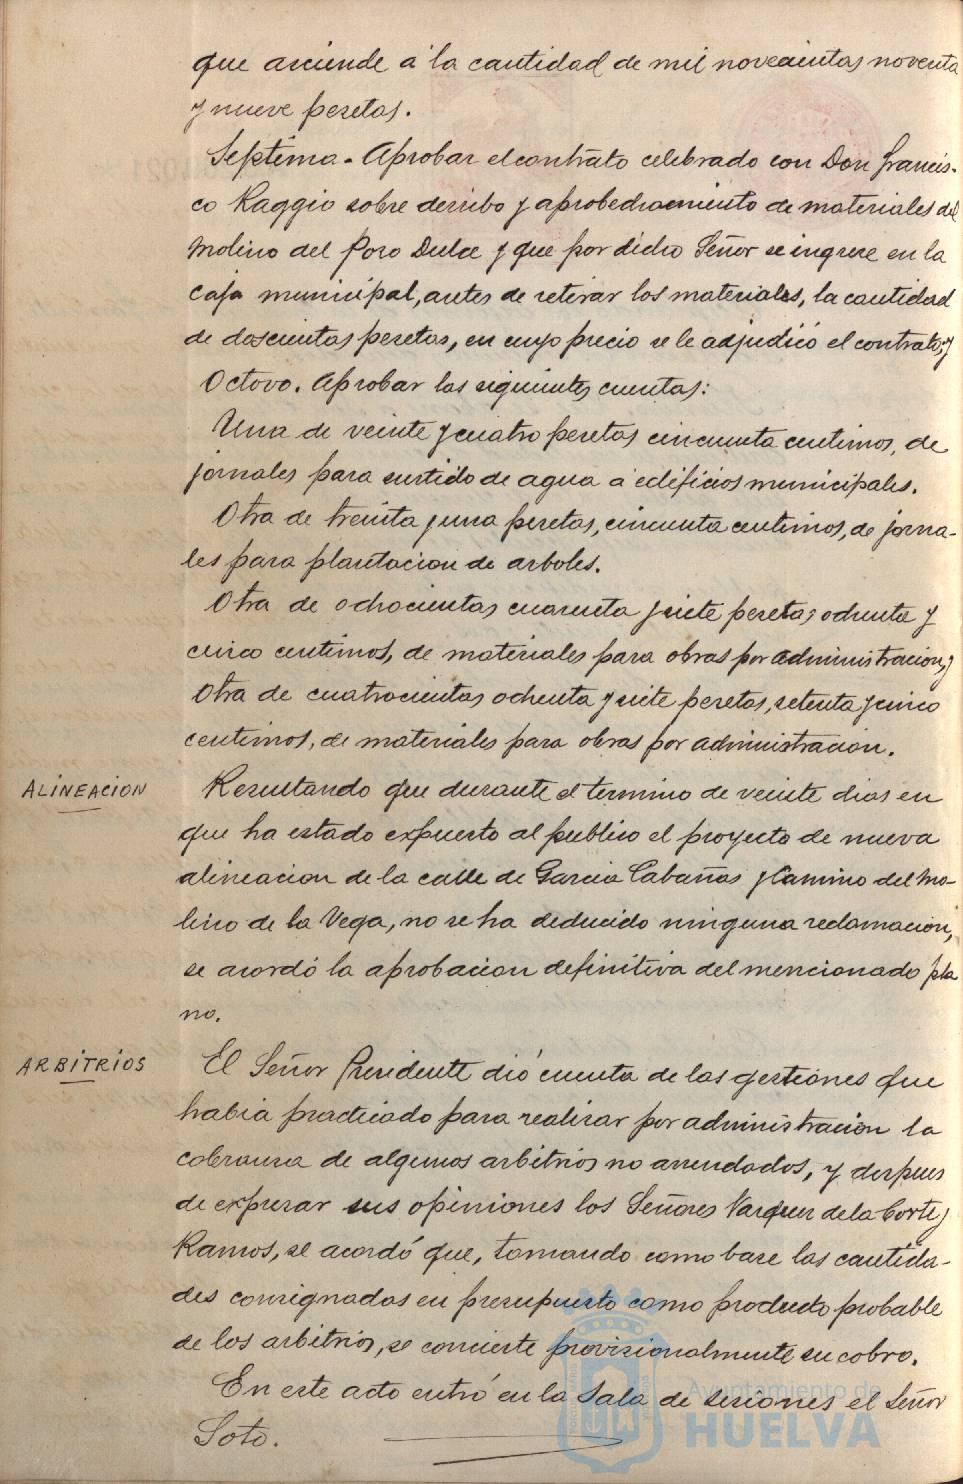 que asciende á la cantidad de mil novecientas noventa
y nueve pesetas.
Septimo. Aprobar el contrato celebrado con Don Francis-
co Raggio sobre derribo y aprobechamiento de materiales del
Molino del Pozo Dulce y que por dicho Señor se ingrese en la
Caja municipal, antes de retirar los materiales, la cantidad
de doscientas pesetas, en cuyo precio se le adjudicó el contrato, y
Octavo. Aprobar las siguientes cuentas:
Una de veinte y cuatro pesetas cincuenta centimos, de
jornales para surtido de agua á edificios municipales.
Otra de treinta y una pesetas, cincuenta centimos, de jorna-
les para plantacion de arboles.
Otra de ochocientas cuarenta y siete pesetas ochenta y
cinco centimos, de materiales para obras por administracion, y
Otra de cuatrocientas ochenta y siete pesetas, setenta y cinco
centimos, de materiales para obras por administracion.
ALINEACION
Resultando que durante el termino de veinte dias en
que ha estado expuesto al publico el proyecto de nueva
alineacion de la calle de Garcia Cabañas y Camino del Mo-
lino de la Vega, no se ha deducido ninguna reclamacion,
se acordó la aprobacion definitiva del mencionado pla
no.
ARBITRIOS
El Señor Presidente dió cuenta de las gestiones que
habia practicado para realizar por administracion la
cobranza de algunos arbitrios no arrendados, y despues
de expresar sus opiniones los Señores Vazquez de la Corte y
Ramos, se acordó que, tomando como base las cantida-
des consignadas en presupuesto como producto probable
de los arbitrios, se concierte provisionalmente su cobro.
En este acto entró en la Sala de sesiones el Señor
Soto.
Ayuntamiento de
HUELVA